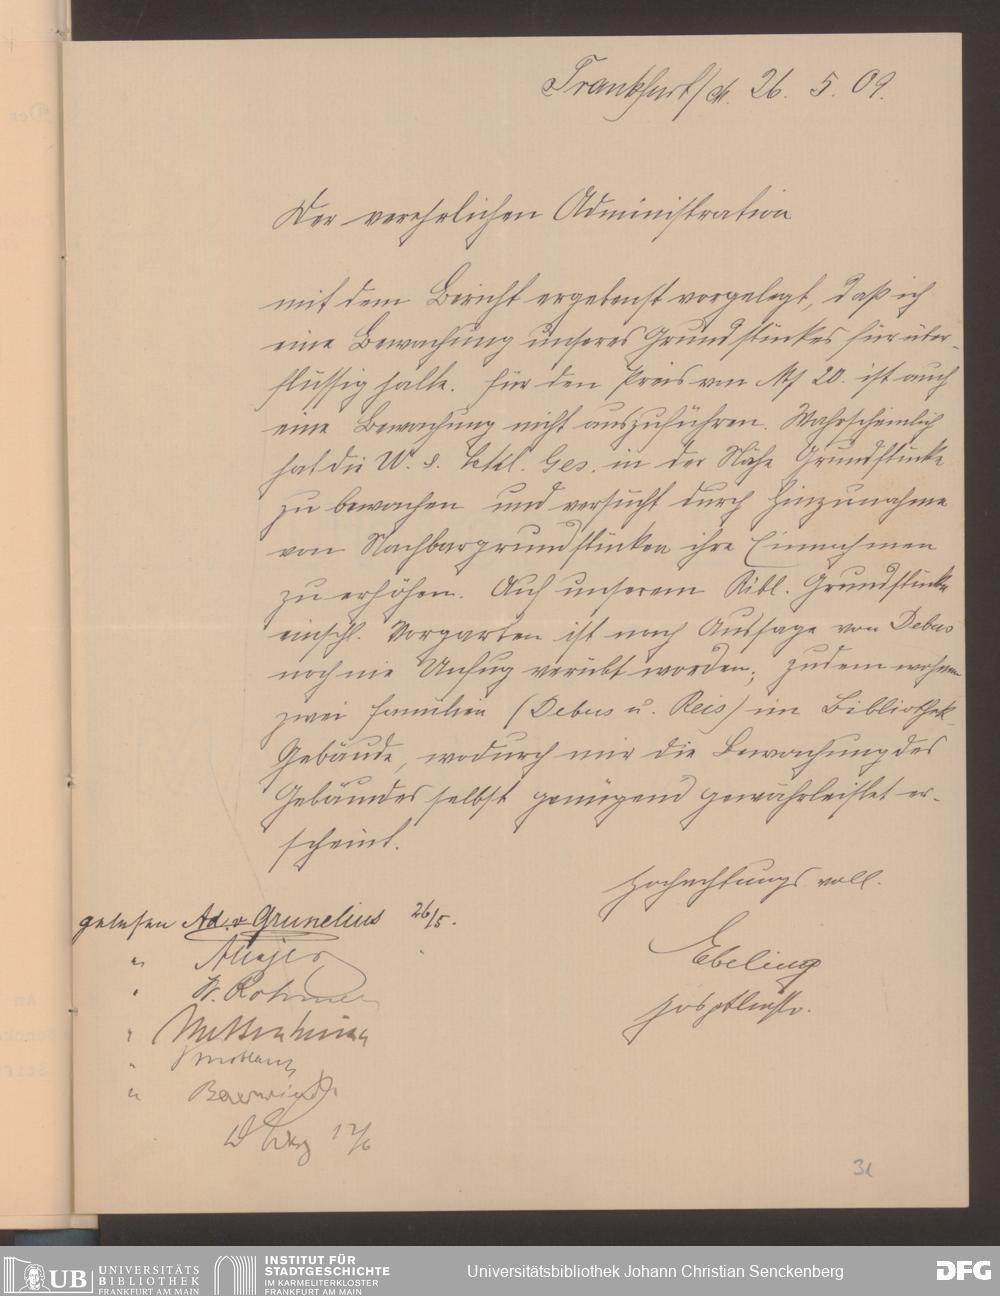 Frankfurt/M. 26. 5. 09.
Der verehrlichen Administration
mit dem Bericht ergebenst vorgelegt, daß ich
eine Bewachung unseres Grundstückes für über-
flüssig halte. Für den Preis von M 20. ist auch
eine Bewachung nicht auszuführen. Wahrscheinlich
hat die W. u. Schl. Ges. in der Nähe Grundstücke
zu bewachen und versucht durch Hinzunahme
von Nachbargrundstücken ihre Einnahmen
zu erhöhen. Auf unserem Bibl. Grundstücke
einschl. Vorgarten ist nach Aussage von Debus
noch nie Unfug verübt worden; zudem wohnen
zwei Familien (Debus u. Reis) im Bibliothek-
Gebäude, wodurch mir die Bewachung des
Gebäudes selbst genügend gewährleistet er-
scheint.
Hochachtungsvoll.
gelesen Ad. v Grunelius 26/5.
Ebeling
W. Rohmer
12/6
31
UB UNIVERSITÄTS
BIBLIOTHEK
FRANKFURT AM MAIN
INSTITUT FÜR
STADTGESCHICHTE
IM KARMELITERKLOSTER
FRANKFURT AM MAIN
Universitätsbibliothek Johann Christian Senckenberg
DFG